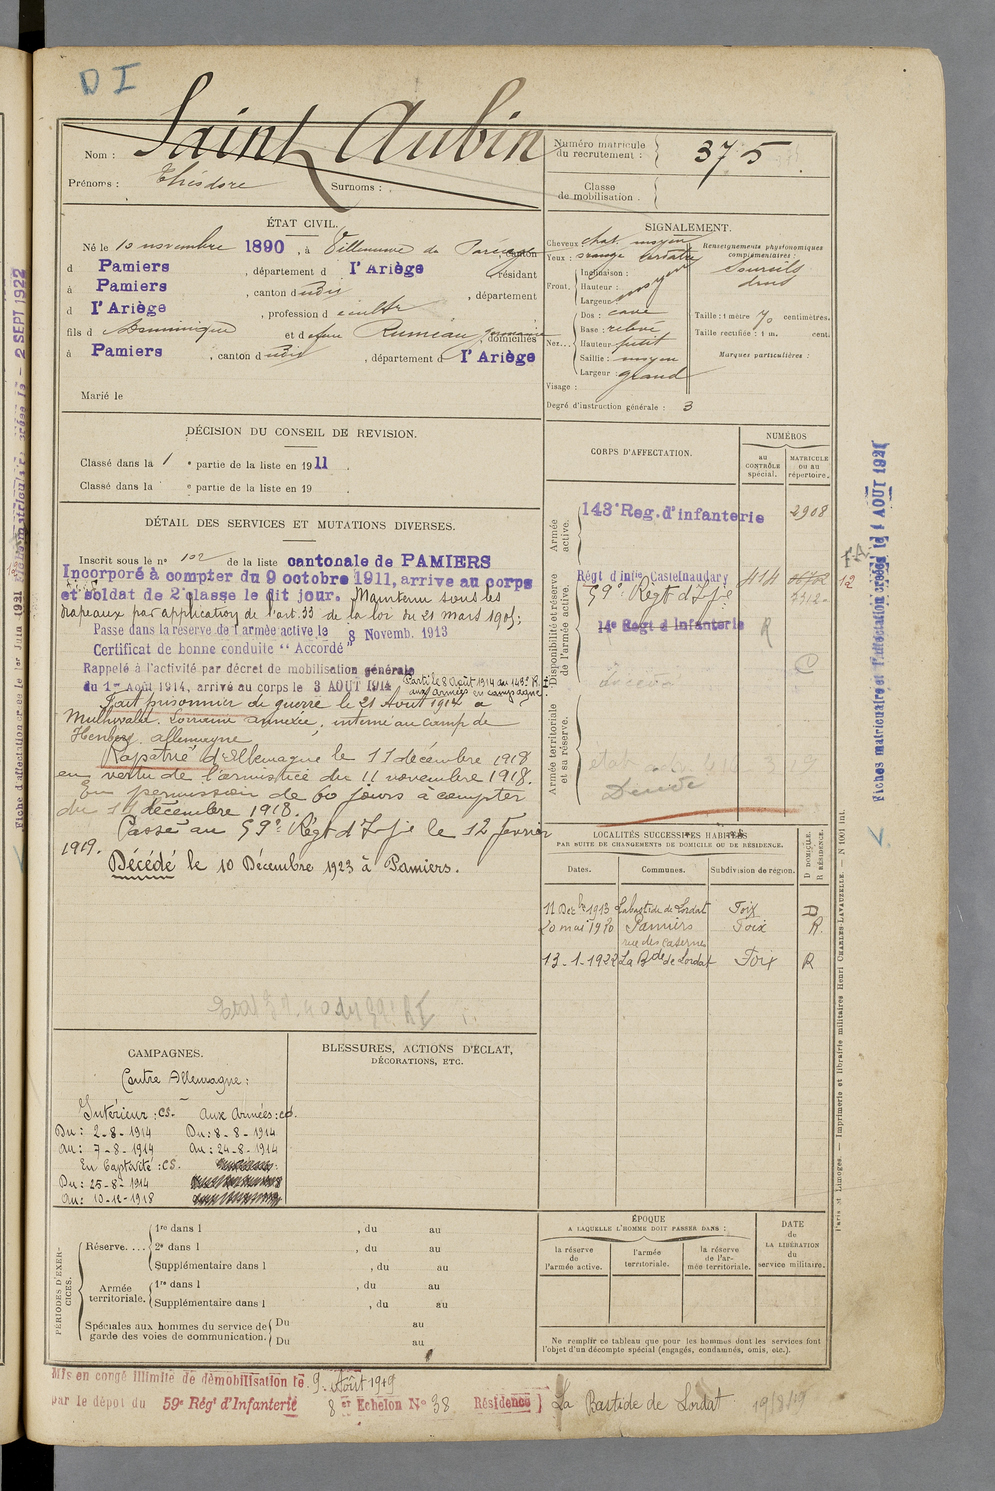 D I
Nom : Saint Aubin
Prénoms : Théodore Surnoms :
Numéro matricule du recrutement : 375
Classe de mobilisation .
ÉTAT CIVIL.
Né le 10 novembre 1890, à Villeneuve du Paréage, canton
d Pamiers, département d l'Ariège, résidant
à Pamiers, canton dudit, département
d l'Ariège, profession d
fils d Dominique et d Rumeau, domiciliés
à Pamiers, canton dudit, département d l'Ariège
Marié le
SIGNALEMENT.
Cheveux chat. moyen
Yeux : orange
Front. Inclinaison :
Hauteur : moyen
Largeur
Nez... Dos : cavé
Base : relevé
Hauteur petit
Saillie : moyen
Largeur : grand
Visage :
Degré d'instruction générale : 3
Renseignements physionomiques complémentaires :
Sourcils
droits
Taille : 1 mètre 70 centimètres.
Taille rectifiée : 1 m. centi.
Marques particulières :
DÉCISION DU CONSEIL DE REVISION.
Classé dans la 1 e partie de la liste en 1911 .
Classé dans la e partie de la liste en 19 .
DÉTAIL DES SERVICES ET MUTATIONS DIVERSES.
Inscrit sous le n° 102 de la liste cantonale de PAMIERS
Incorporé à compter du 9 octobre 1911, arrive au corps
et soldat de 2e classe le dit jour. Maintenu sous les
drapeaux par application de l'art. 33 de la loi du 21 mars 1905;
Passe dans la réserve de l'armée active le 8 Novemb. 1913
Certificat de bonne conduite "Accordé"
Rappelé à l'activité par décret de mobilisation générale
du 1er Août 1914, arrivé au corps le 3 AOUT 1914 Parti le 8 Août 1914 du 143e R.I.
aux armées en campagne
Fait prisonnier de guerre le 21 Août 1914 à
Lorraine annexée, interné au camp de
allemagne
Rapatrié d'Allemagne le 11 décembre 1918
en vertu de l'armistice du 11 novembre 1918.
En permission de 60 jours à compter
du 14 décembre 1918.
Passé au 59e Régt d'Infie le 12 février
1919.
Décédé le 10 Décembre 1923 à Pamiers.
CORPS D'AFFECTATION.
NUMÉROS
au CONTRÔLE spécial.
MATRICULE ou au répertoire.
Armée active.
143e Reg. d'infanterie 2908
Disponibilité et réserve de l'armée active.
Régt d'Infie Castelnaudary 414
59e Régt d'Infie
14e Regt d'Infanterie R
Armée territoriale et sa réserve.
Décédé
F.A.
12
LOCALITÉS SUCCESSIVES HABITÉES
PAR SUITE DE CHANGEMENTS DE DOMICILE OU DE RÉSIDENCE.
Dates. Communes. Subdivision de région. D DOMICILE. R RÉSIDENCE.
11 Dec bre 1913 Labastide de Lordat Foix D
20 mai 1920 Pamiers Foix R.
rue des Casernes
13-1-1922 La Bde de Lordat Foix R
CAMPAGNES.
Contre Allemagne :
Intérieur : CS. Aux Armées : CD.
Du : 2-8-1914 Du : 8-8-1914
Au : 7-8-1914 Au : 24-8-1914
En Captivité : CS.
Du : 25-8-1914
Au : 10-12-1918
BLESSURES, ACTIONS D'ÉCLAT,
DÉCORATIONS, ETC.
PÉRIODES D'EXERCICES.
Réserve.... 1re dans l , du au
2e dans l , du au
Supplémentaire dans l , du au
Armée territoriale. 1re dans l , du au
Supplémentaire dans l , du au
Spéciales aux hommes du service de garde des voies de communication. Du au
Du au
ÉPOQUE
A LAQUELLE L'HOMME DOIT PASSER DANS :
la réserve de l'armée active.
l'armée territoriale.
la réserve de l'armée territoriale.
DATE de LA LIBÉRATION du service militaire.
Ne remplir ce tableau que pour les hommes dont les services font
l'objet d'un décompte spécial (engagés, condamnés, omis, etc.).
Mis en congé illimité de démobilisation le 9 Août 1919
par le dépôt du 59e Rég' d'Infanterie 8 er Echelon N° 38 Résidence } La Bastide de Lordat 19/8/19
Paris et Limoges. — Imprimerie et librairie militaires Henri CHARLES-LAVAUZELLE. — N 1001 int.
Fiches matriculaire et d'affectation créées le 1 AOUT 1921
Fiche d'affectation créée le 1er Juin 1921
2 SEPT 1922